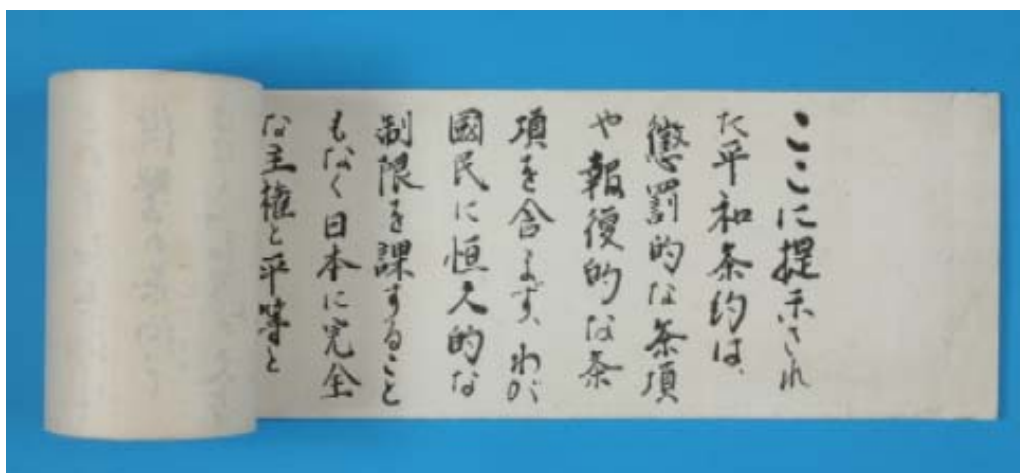 ここに提示され
た平和条約は、
懲罰的な条項
や報復的な条
項を含まず、わが
國民に恒久的な
制限を課すること
もなく日本に完全
な主権と平等と